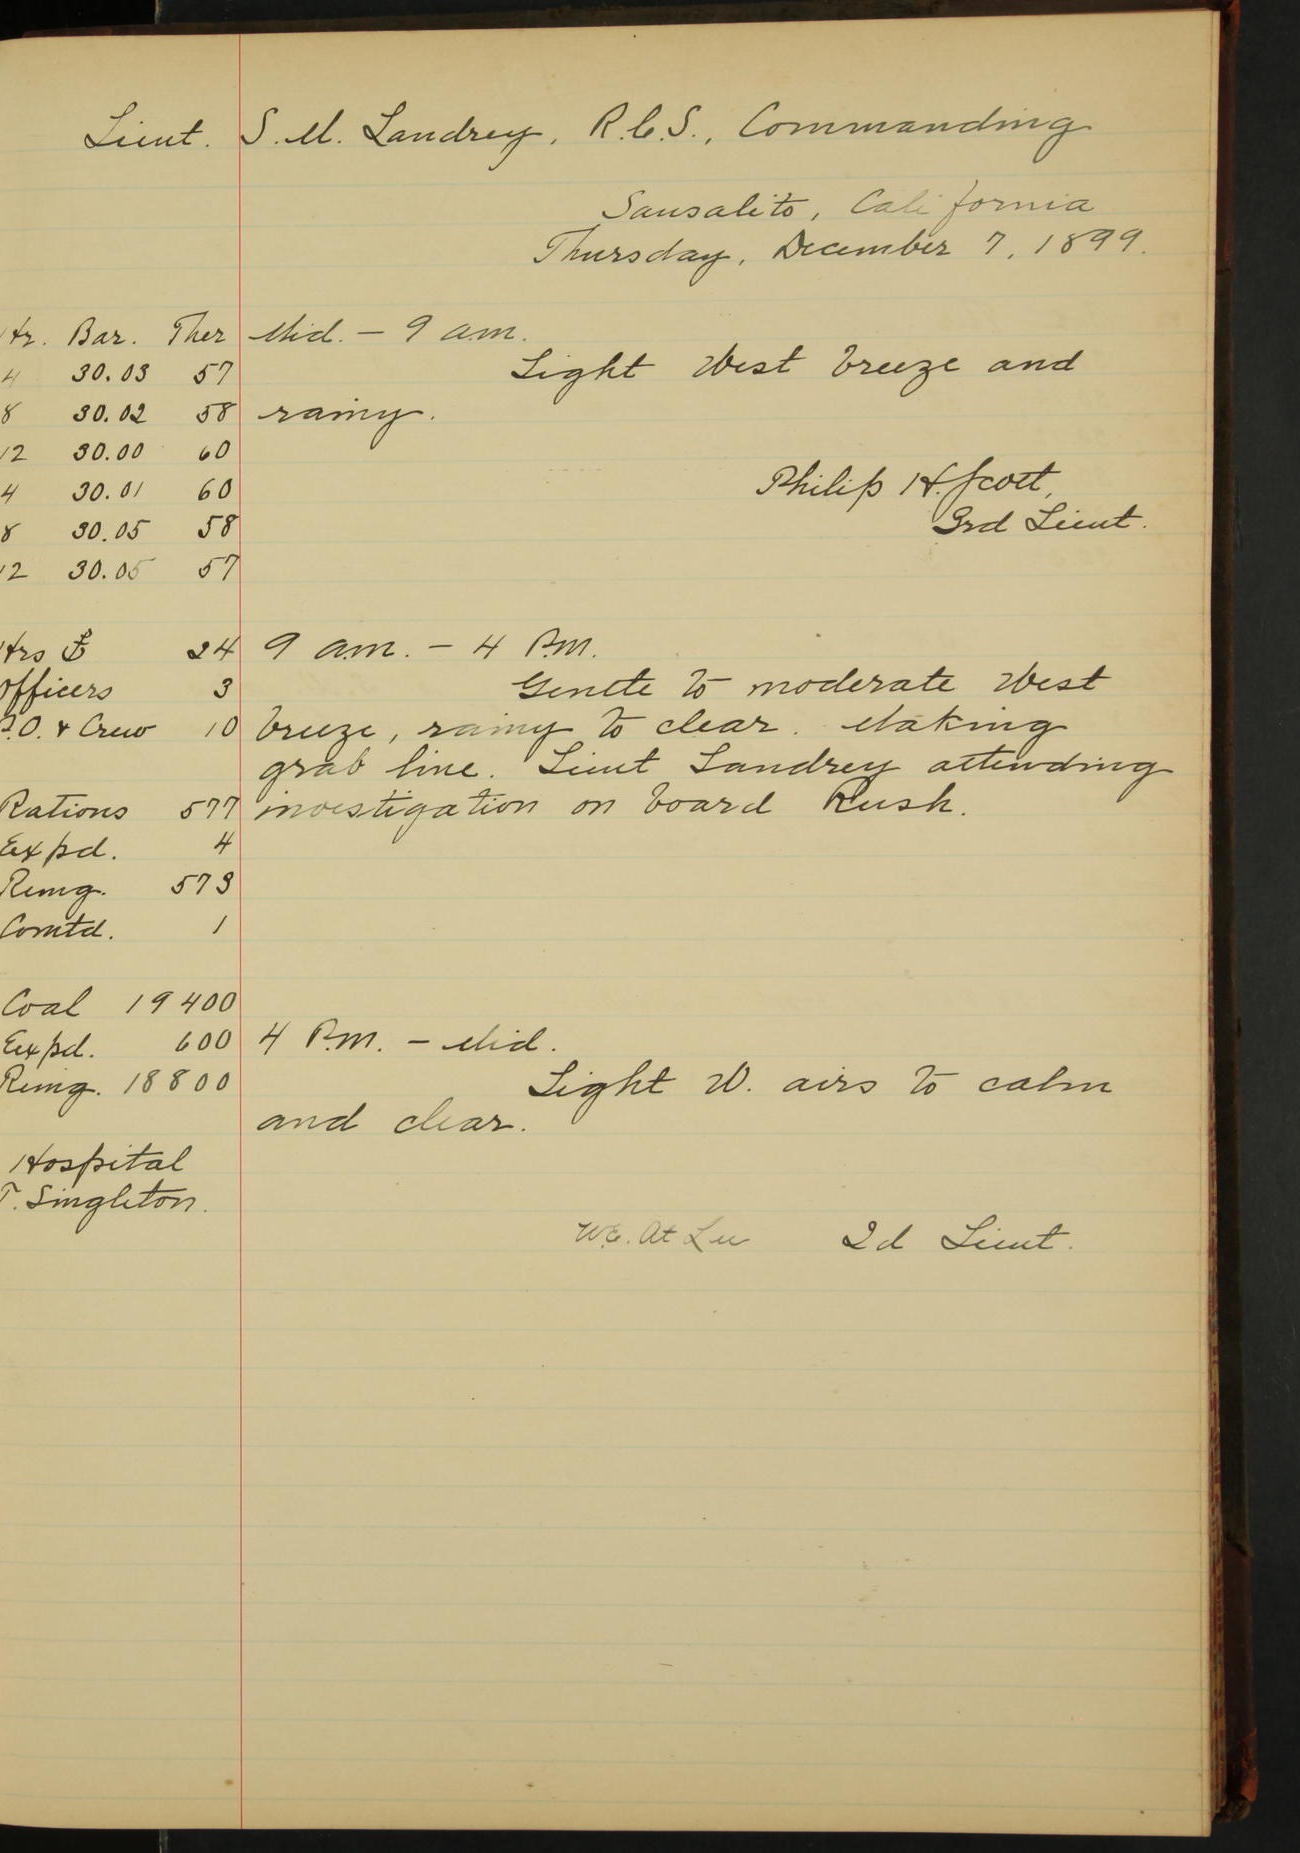 Lieut. S. M. Landrey, R.C.S., Commanding
Sausalito, California
Thursday, December 7, 1899.
Hr. Bar. Ther Mid. – 9 a.m.
4 30.03 57 Light West breeze and
8 30.02 58 rainy.
12 30.00 60
4 30.01 60 Philip H. Scott,
8 30.05 58 3rd Lieut.
12 30.05 57
Hrs 24 9 a.m. – 4 P.M.
Officers 3 Gentle to moderate West
P.O. & Crew 10 breeze, rainy to clear. Making
grab line. Lieut Landrey attending
Rations 577 investigation on board Rush.
Expd. 4
Remg. 573
Comtd. 1
Coal 19400
Expd. 600 4 P.M. – Mid.
Remg. 18800 Light W. airs to calm
and clear.
Hospital
T. Singleton.
W.E. At Lee 2d Lieut.